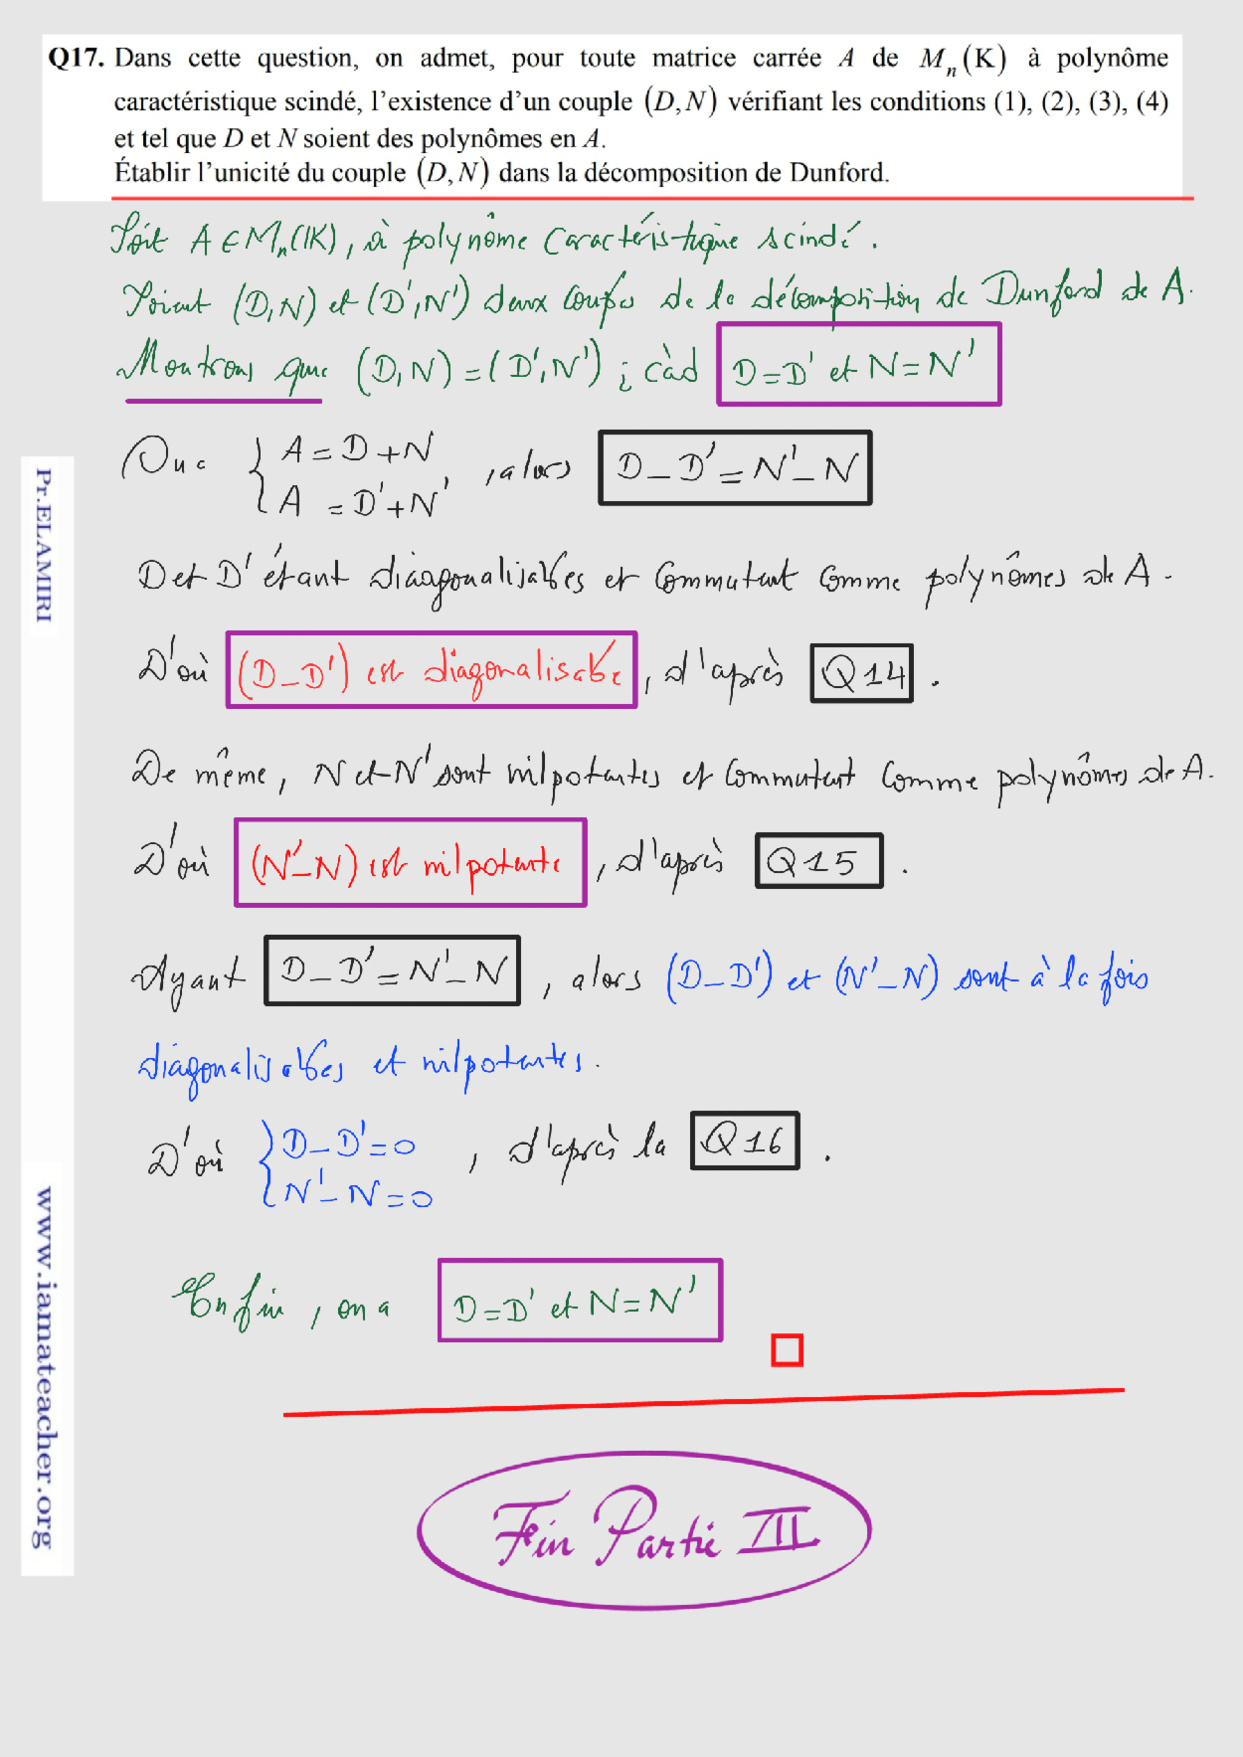 Q17. Dans cette question, on admet, pour toute matrice carrée A de Mₙ(K) à polynôme
caractéristique scindé, l'existence d'un couple (D,N) vérifiant les conditions (1), (2), (3), (4)
et tel que D et N soient des polynômes en A.
Établir l'unicité du couple (D,N) dans la décomposition de Dunford.
Soit A∈Mₙ(IK), à polynôme Caractéristique scindé.
Soient (D,N) et (D',N') deux Couples de la décomposition de Dunford de A.
Montrons que (D,N)=(D',N') ; càd D=D' et N=N'
On a { A=D+N
A=D'+N' , alors D-D'=N'-N
D et D' étant diagonalisables et Commutent Comme polynômes de A.
D'où (D-D') est diagonalisable, d'après Q14.
De même, N et N' sont nilpotentes et Commutent Comme polynômes de A.
D'où (N'-N) est nilpotente, d'après Q15.
Ayant D-D'=N'-N, alors (D-D') et (N'-N) sont à la fois
diagonalisables et nilpotentes.
D'où { D-D'=0
N'-N=0 , d'après la Q16.
Enfin, on a D=D' et N=N'
Fin Partie III
Pr.ELAMIRI
www.iamateacher.org